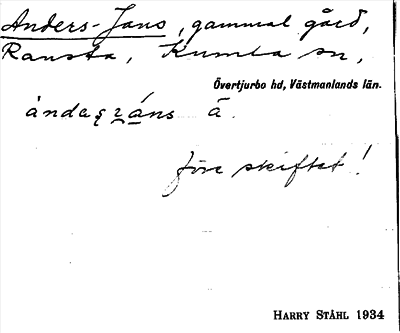 Anders-Jans, gammal gård,
Ransta, Kumla sn,
Övertjurbo hd, Västmanlands län.
före skiftet!
HARRY STÅHL 1934